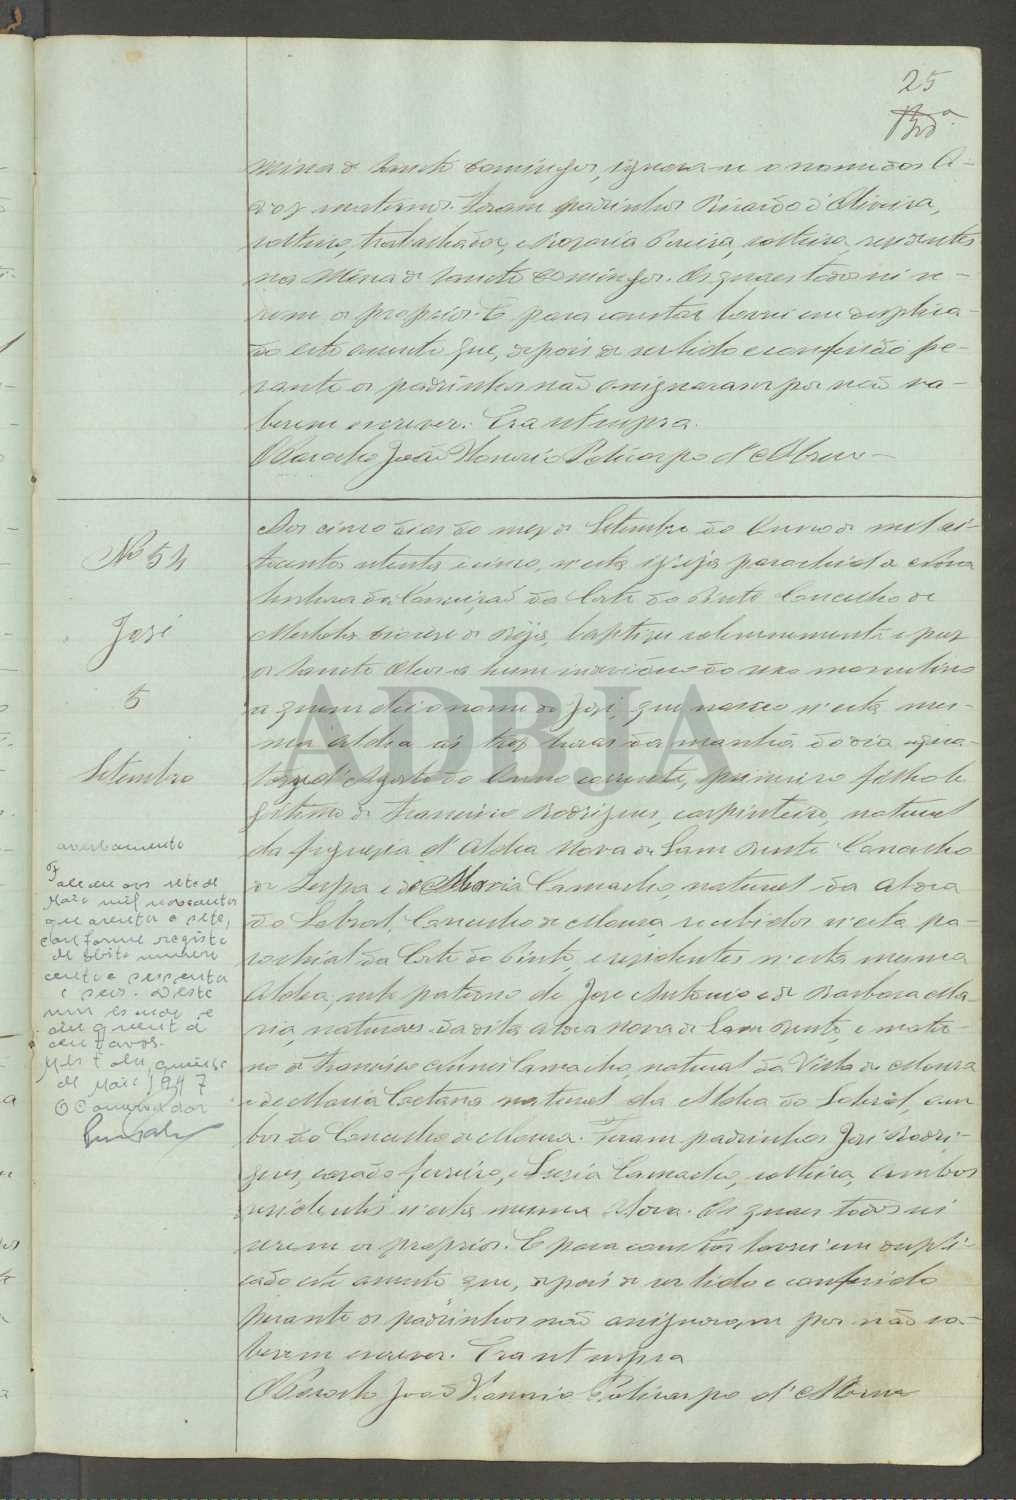 25
Mina de Sancto Domingos, ignora-se o nome dos A-
vos maternos. Foram padrinhos Ricardo d'Oliveira,
solteiro, trabalhador, e Rozaria Pereira, solteira, rezidentes
na Mina de Sancto Domingos. Os quaes todos sei se-
rem os proprios. E para constar lavrei em duplica-
do este assento que, depois de ser lido e conferido pe-
rante os padrinhos não assignaram por não sa-
berem escrever. Era ut supra.
O Parocho João Honorio Policarpo d'Abreu
Nº 54
José
5
Setembro
Aos cinco dias do mez de Setembro do Anno de mil oi-
tocentos setenta e cinco, n'esta igreja parochial de Nossa
Senhora da Conceição da Corte do Pinto Concelho de
Mertola diocese de Beja, baptizei solemnemente e puz
os Sanctos Oleos a hum individuo do sexo masculino
a quem dei o nome de José, que nasceo n'esta mes-
ma Aldea ás trez horas da manhã do dia qua-
torze d'Agosto do Anno corrente, primeiro filho le-
gitimo de Francisco Rodrigues, carpinteiro, natural
da freguezia d'Aldea Nova de Sam Bento Concelho
de Serpa e de Maria Camacho, natural da Aldea
do Sobral, Concelho de Moura, recebidos n'esta pa-
rochial da Corte do Pinto, e rezidentes n'esta mesma
Aldea, neto paterno de José Antonio e de Barbara Ma-
ria, naturaes da dita Aldea Nova de Sam Bento, e mater-
no de Francisco Nunes Camacho, natural da Villa de Moura
e de Maria Caetana natural da Aldea do Sobral, am-
bos do Concelho de Moura. Foram padrinhos José Rodri-
gues, casado ferreiro, e Luzia Camacho, solteira, ambos
rezidentes n'esta mesma Aldea. Os quaes todos sei
serem os proprios. E para constar lavrei em dupli-
cado este assento que, depois de ser lido e conferido
perante os padrinhos não assignaram por não sa-
berem escrever. Era ut supra
O Parocho João Honorio Policarpo d'Abreu
averbamento
Faleceu aos sete de
Maio mil novecentos
quarenta e sete,
conforme registo
de obito numero
cento e sessenta
e seis. Deste
um escudo e
cinquenta
centavos.
Mértola, quinze
de Maio 1947
O Conservador
ADBJA